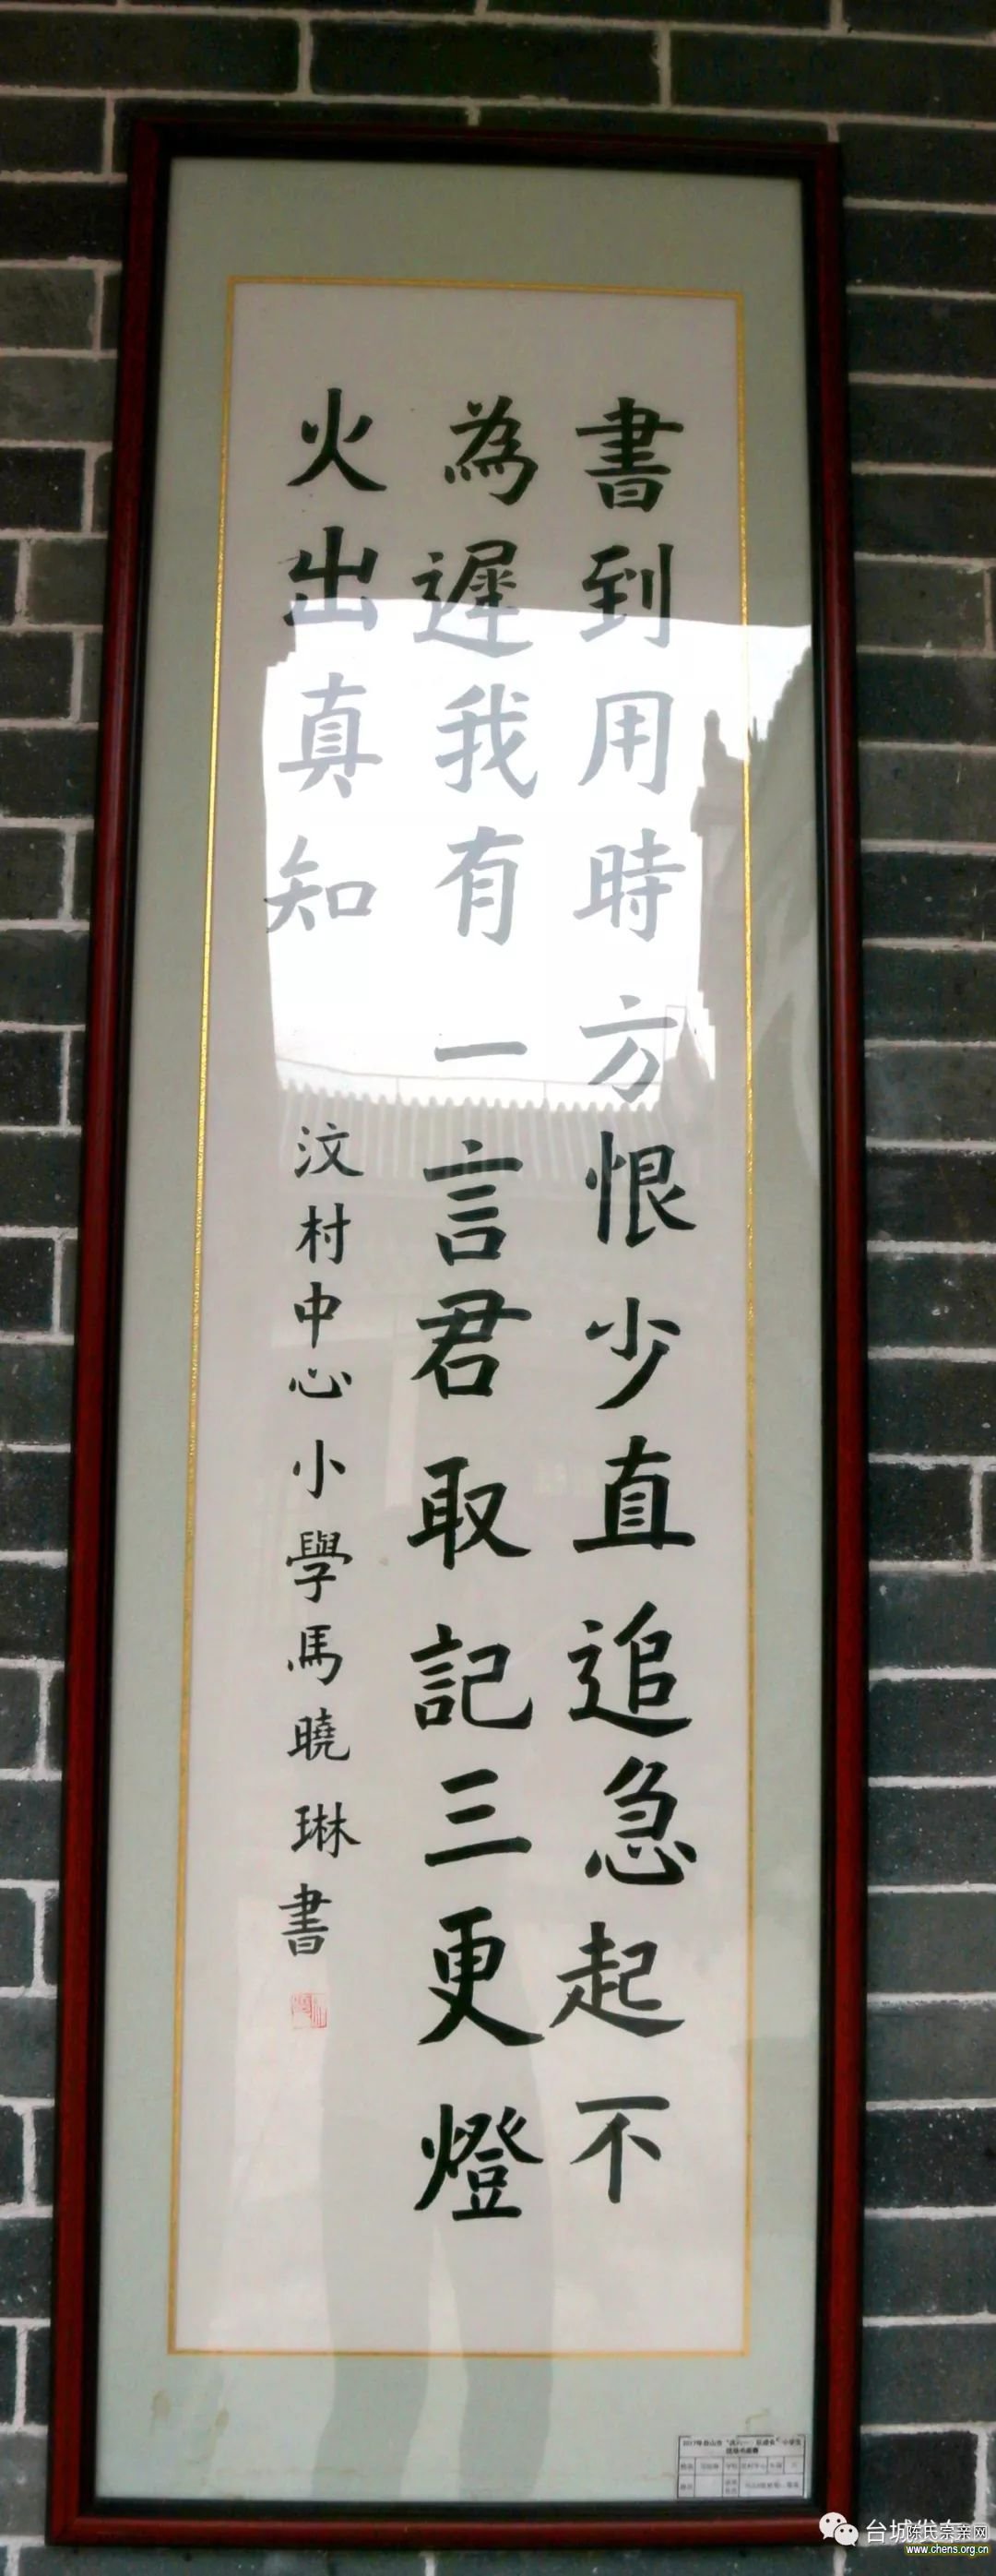 書到用時方恨少直追急起不
為遲我有一言君取記三更燈
火出真知
汶村中心小學馬曉琳書
台城
陈氏宗亲网
www.chens.org.cn